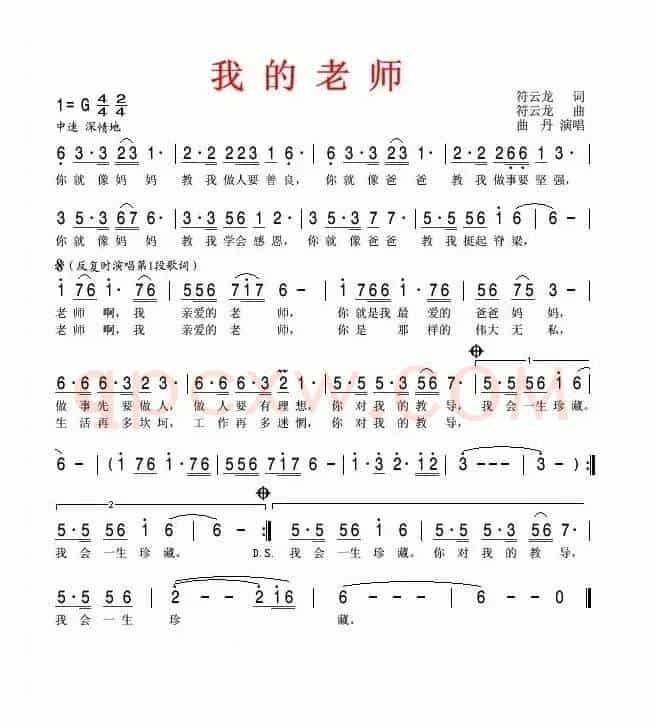 我的老师
1=G 4/4 2/4
中速 深情地
符云龙 词
符云龙 曲
曲 丹 演唱
6 3·3 23 1· | 2·2 223 1 6· | 6 3·3 23 1· | 2·2 266 5· |
你就像妈妈 教我做人要善良, 你就像爸爸 教我做事要坚强,
3 5·3 67 6· | 3·3 56 1 2 · | 3 5·3 77 6· | 5·5 56 1 6 | 6 - |
你就像妈妈 教我学会感恩, 你就像爸爸 教我挺起脊梁,
(反复时演唱第1段歌词)
1 76 1·76 | 555 717 6 - | 1·766 1·6 | 56 75 3 - |
老师啊,我 亲爱的老师, 你就是我最爱的爸爸妈妈,
老师啊,我 亲爱的老师, 你是 那样的伟大无私,
1.
6·6 56 23· | 6·6 56 32· | 3·5 5·3 56 7· | 5·5 56 1 6 |
做事先要做人, 做人要有理想, 你对我的教导, 我会一生珍藏。
生活再多坎坷, 工作再多迷惘, 你对我的教导,
qpcxw.COM
6 - | (1 76 1·76 | 555 717 6 · | 3·2 1·12 | 3 - - - | 3 - ) :||
2.
5·5 56 1 6 | 6 - :|| 5·5 56 1 6 | 5·5 5·3 56 7· |
我会一生珍藏。 D.S. 我会一生珍藏。你对我的教导,
5·5 56 5 6 | 2 - - 216 | 6 - - - | 6 - - 0 ||
我会一生珍 藏。